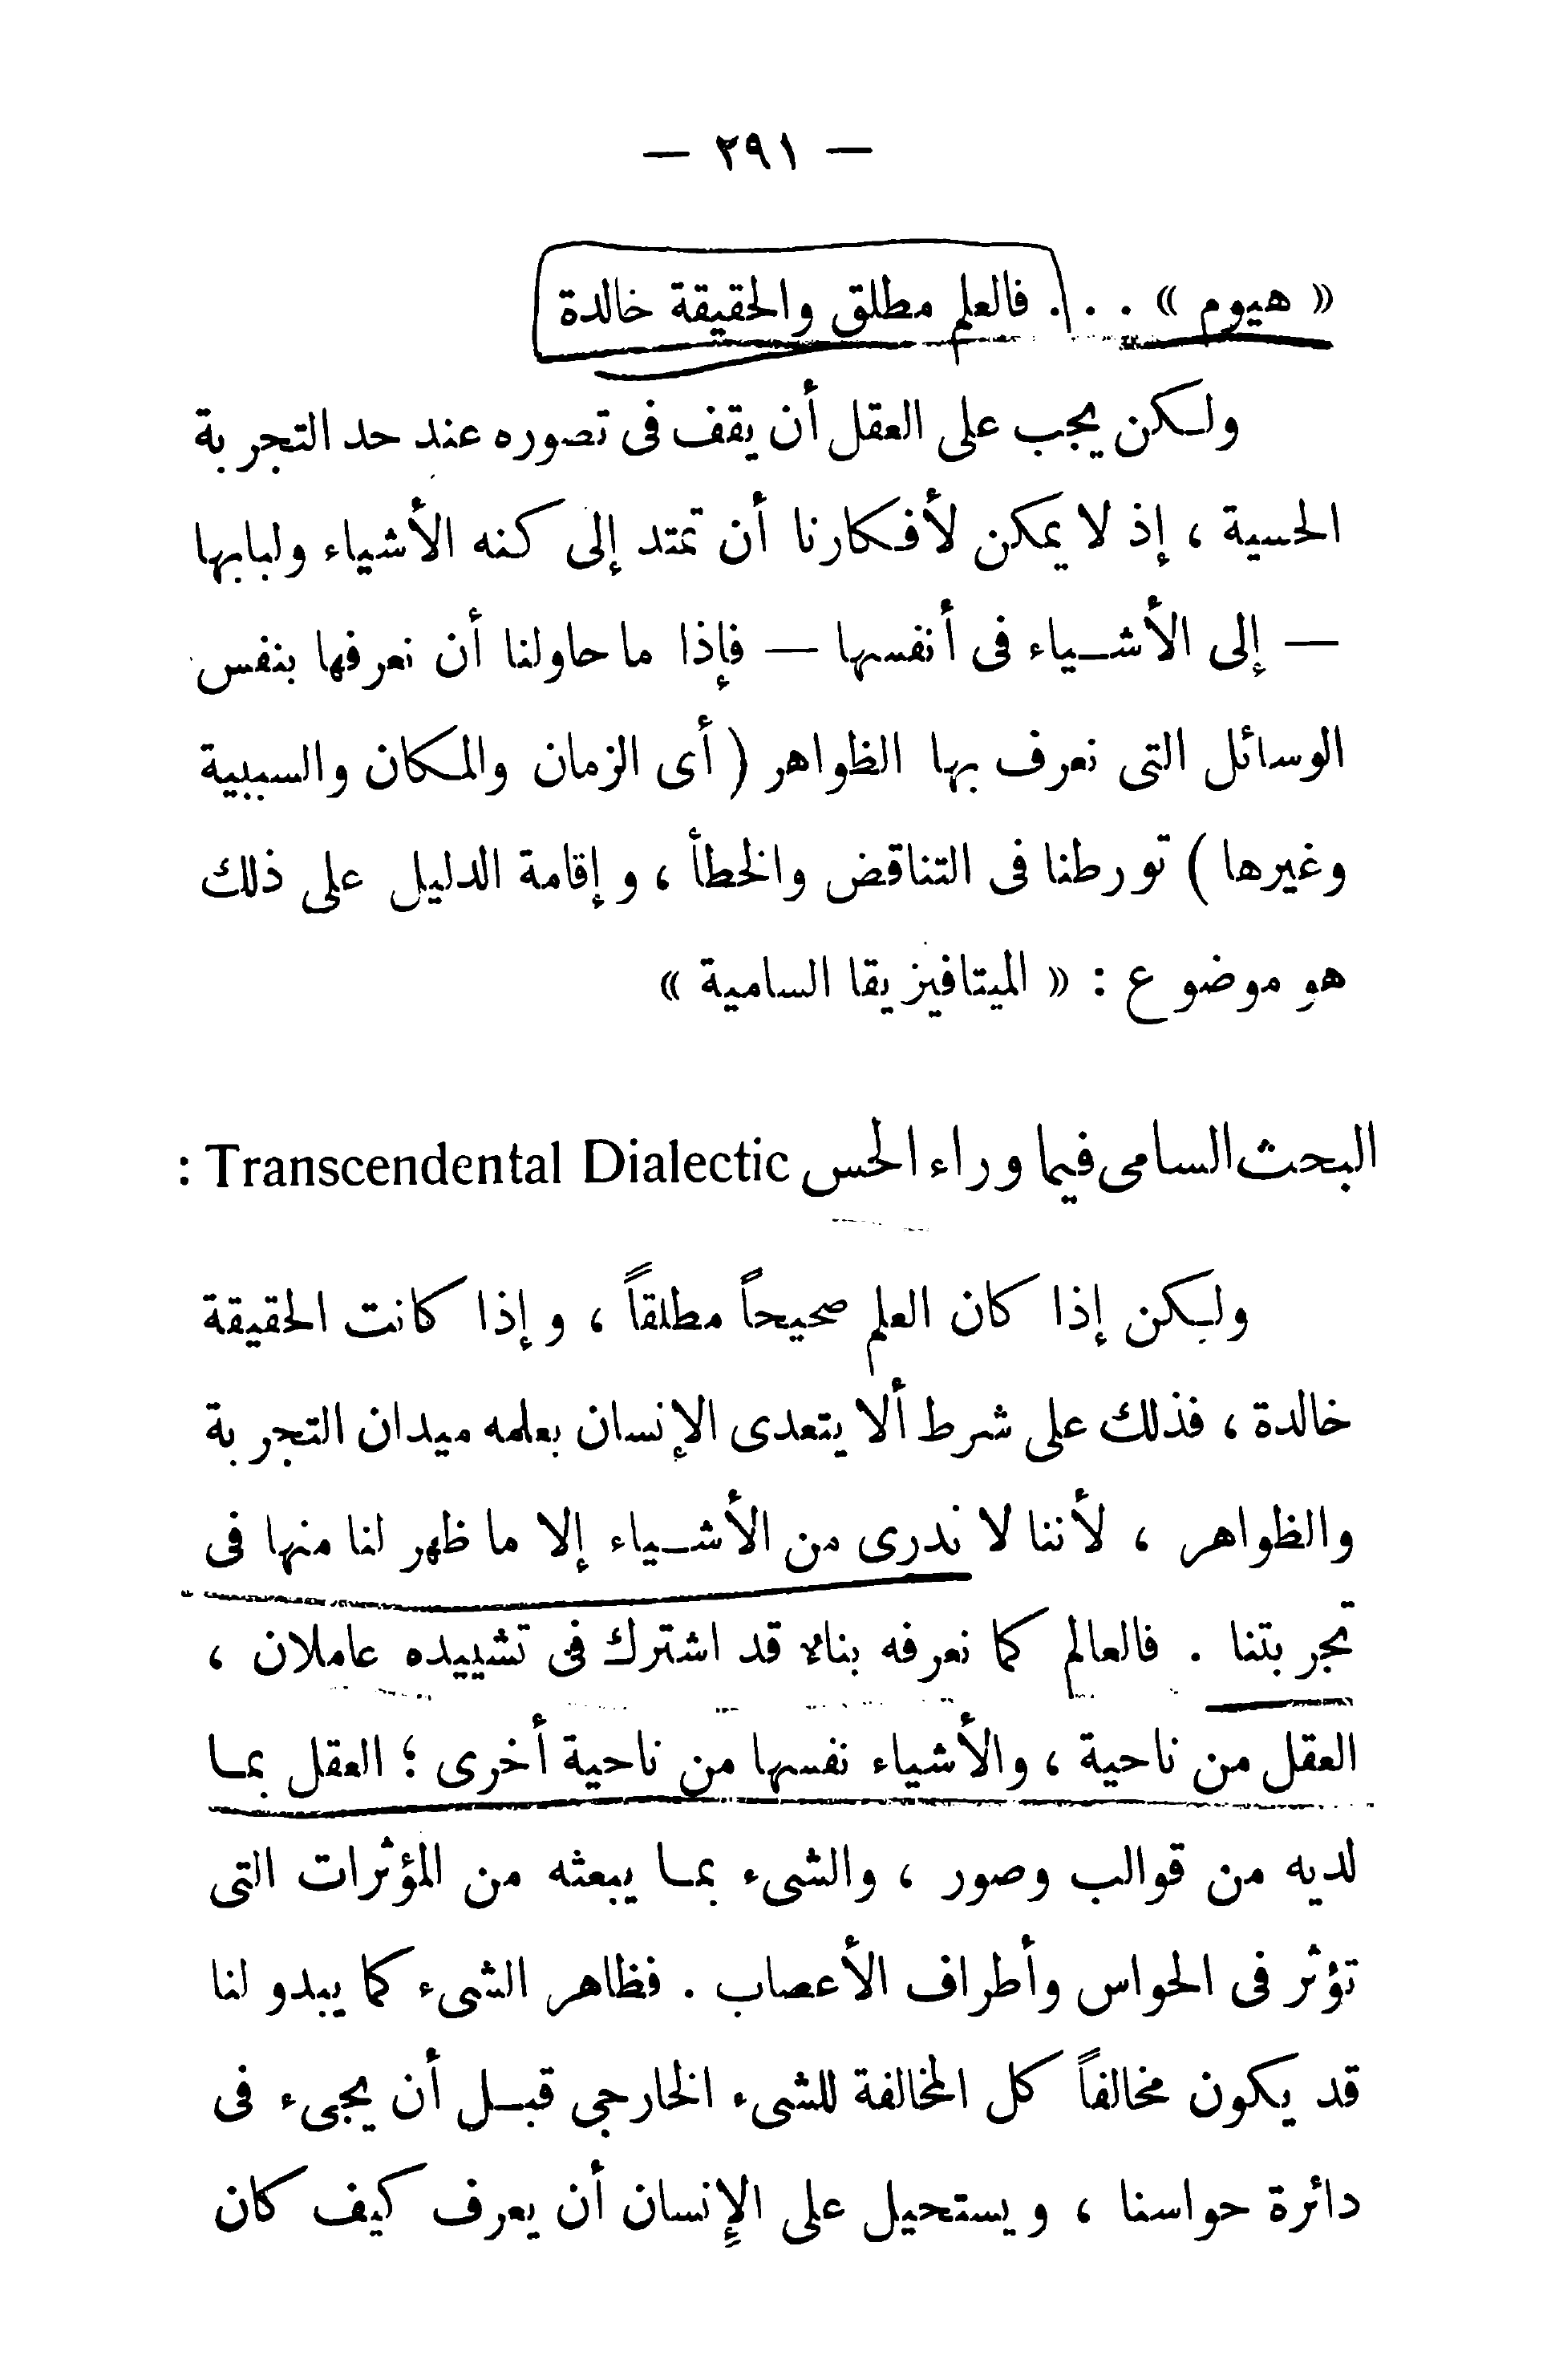 — ٢٩١ —
« هيوم » . . . فالعلم مطلق والحقيقة خالدة
ولكن يجب على العقل أن يقف فى تصوره عند حد التجربة
الحسية ، إذ لا يمكن لأفكارنا أن تمتد إلى كنه الأشياء ولبابها
— إلى الأشياء فى أنفسها — فإذا ما حاولنا أن نعرفها بنفس
الوسائل التى نعرف بها الظواهر ( أى الزمان والمكان والسببية
وغيرها ) تورطنا فى التناقض والخطأ ، وإقامة الدليل على ذلك
هو موضوع : « الميتافيزيقا السامية »
البحث السامى فيما وراء الحس Transcendental Dialectic :
ولكن إذا كان العلم صحيحاً مطلقاً ، وإذا كانت الحقيقة
خالدة ، فذلك على شرط ألا يتعدى الإنسان بعلمه ميدان التجربة
والظواهر ، لأننا لا ندرى من الأشياء إلا ما ظهر لنا منها فى
تجربتنا . فالعالم كما نعرفه بناء قد اشترك فى تشييده عاملان ،
العقل من ناحية ، والأشياء نفسها من ناحية أخرى ؛ العقل بما
لديه من قوالب وصور ، والشىء بما يبعثه من المؤثرات التى
تؤثر فى الحواس وأطراف الأعصاب . فظاهر الشىء كما يبدو لنا
قد يكون مخالفاً كل المخالفة للشىء الخارجى قبل أن يجىء فى
دائرة حواسنا ، ويستحيل على الإنسان أن يعرف كيف كان